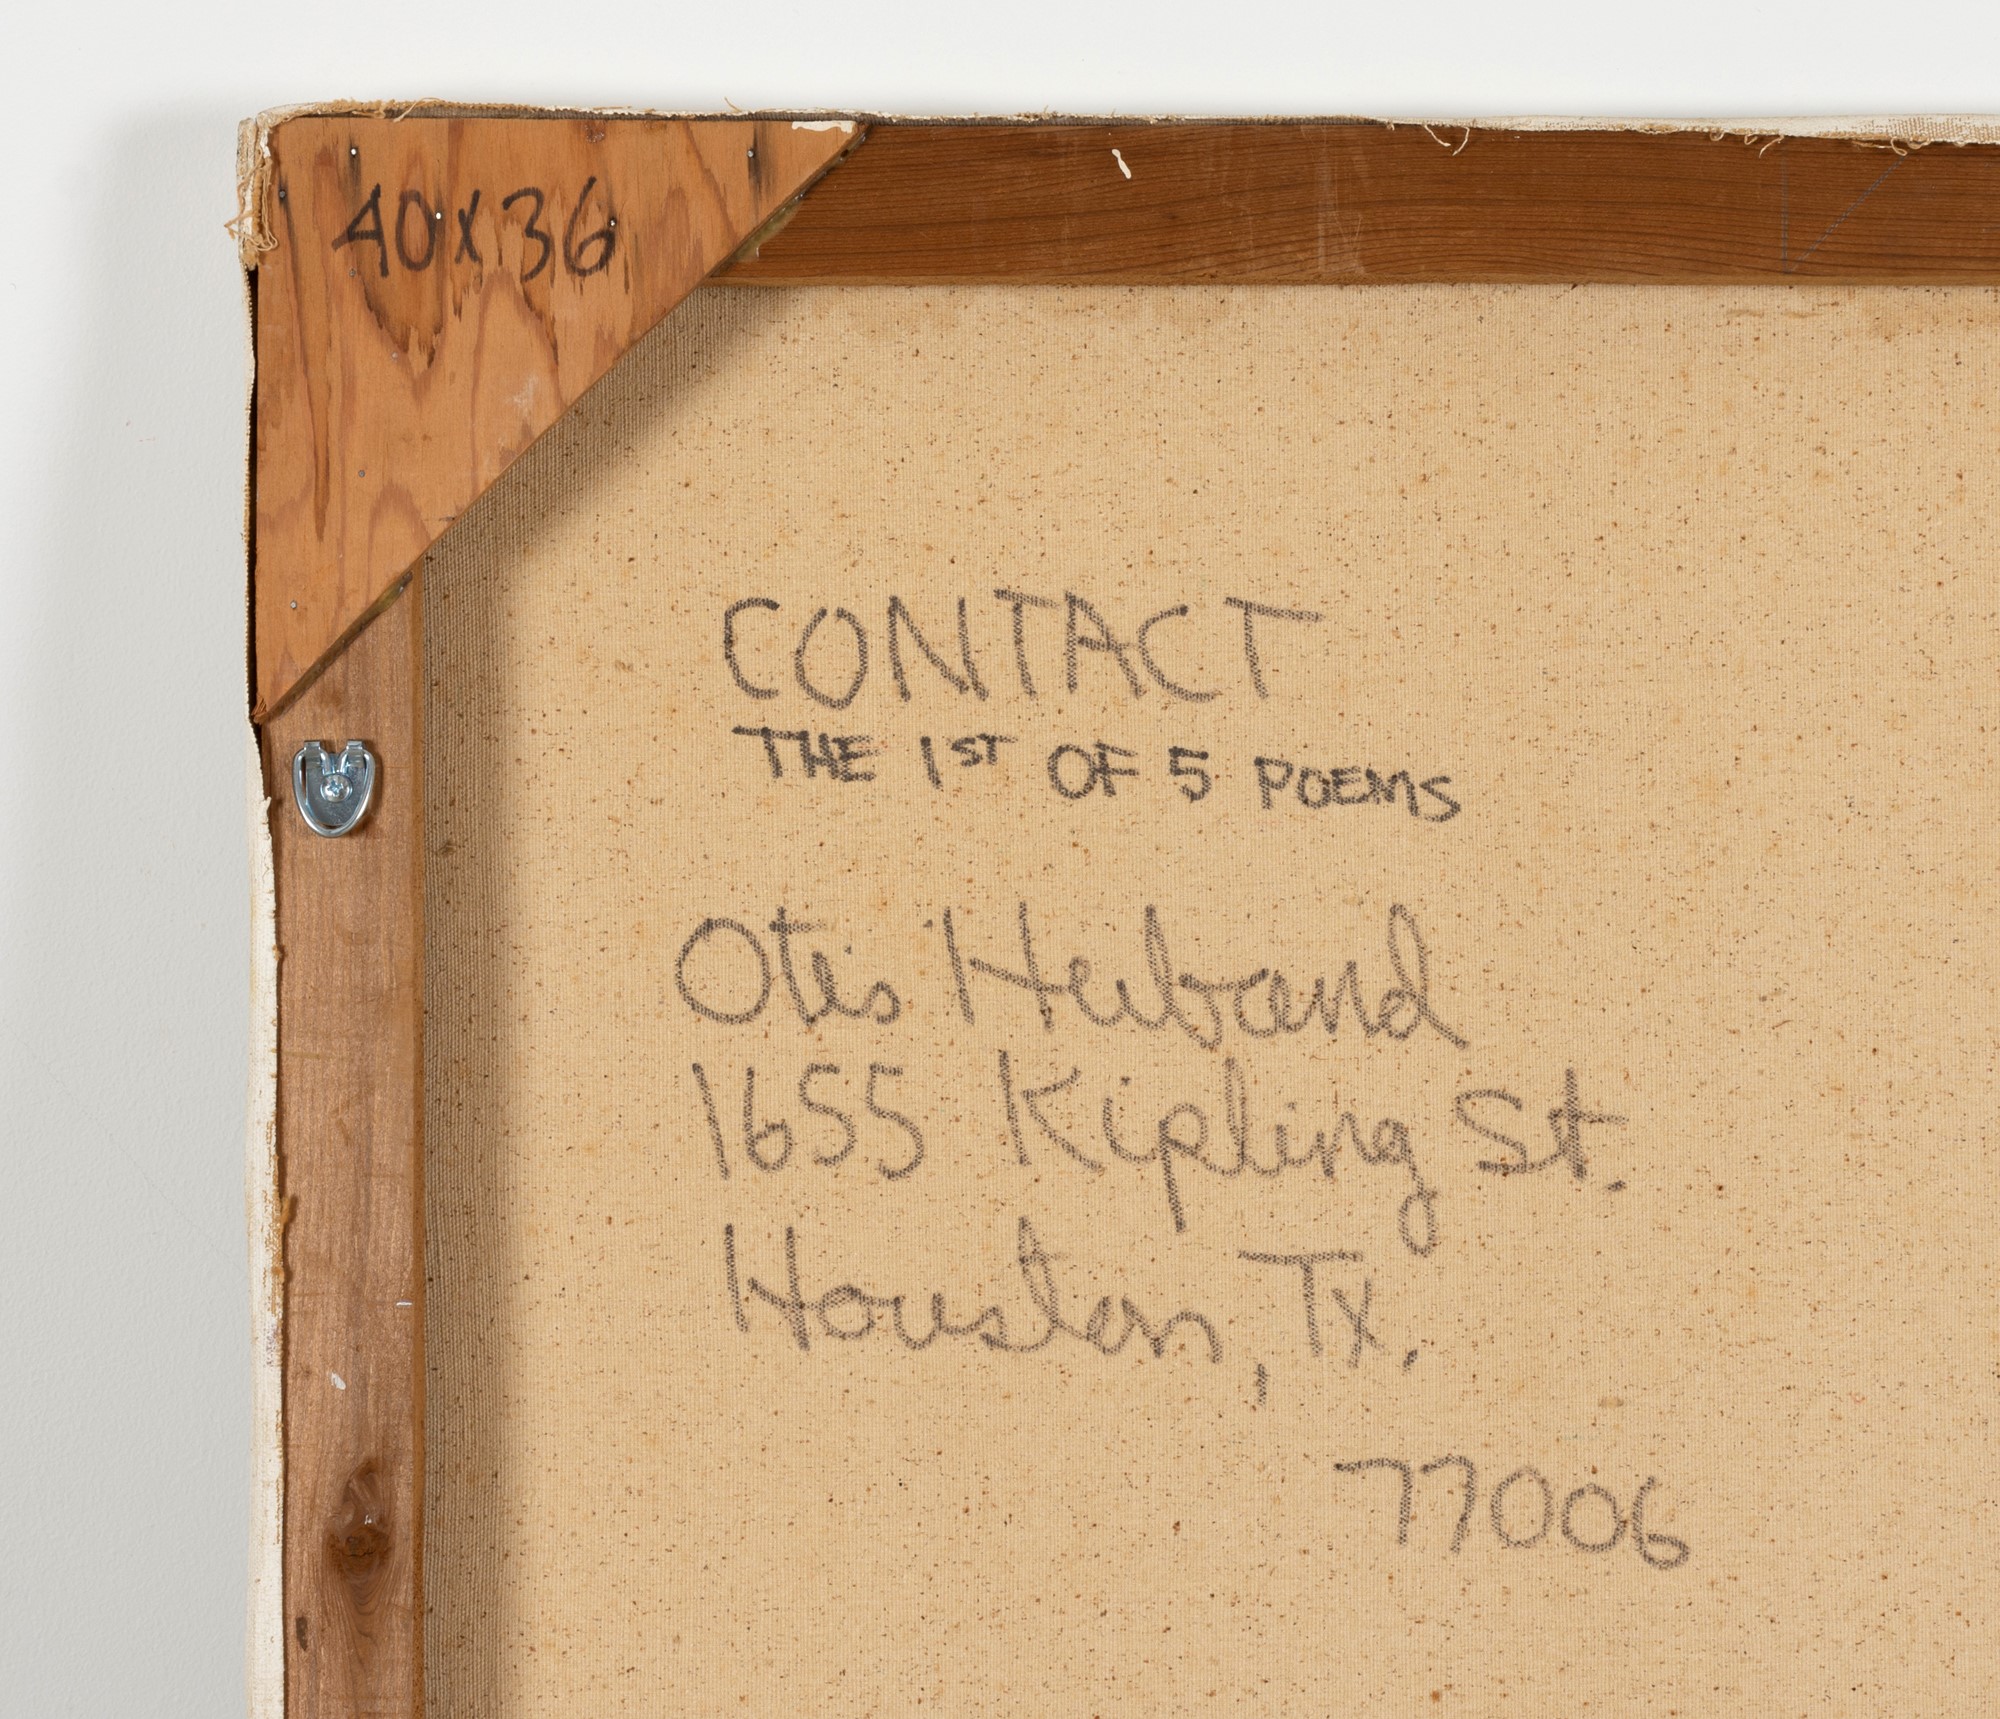 40x36
CONTACT
THE 1ST OF 5 POEMS
Otis Huband
1655 Kipling St.
Houston, Tx.
77006